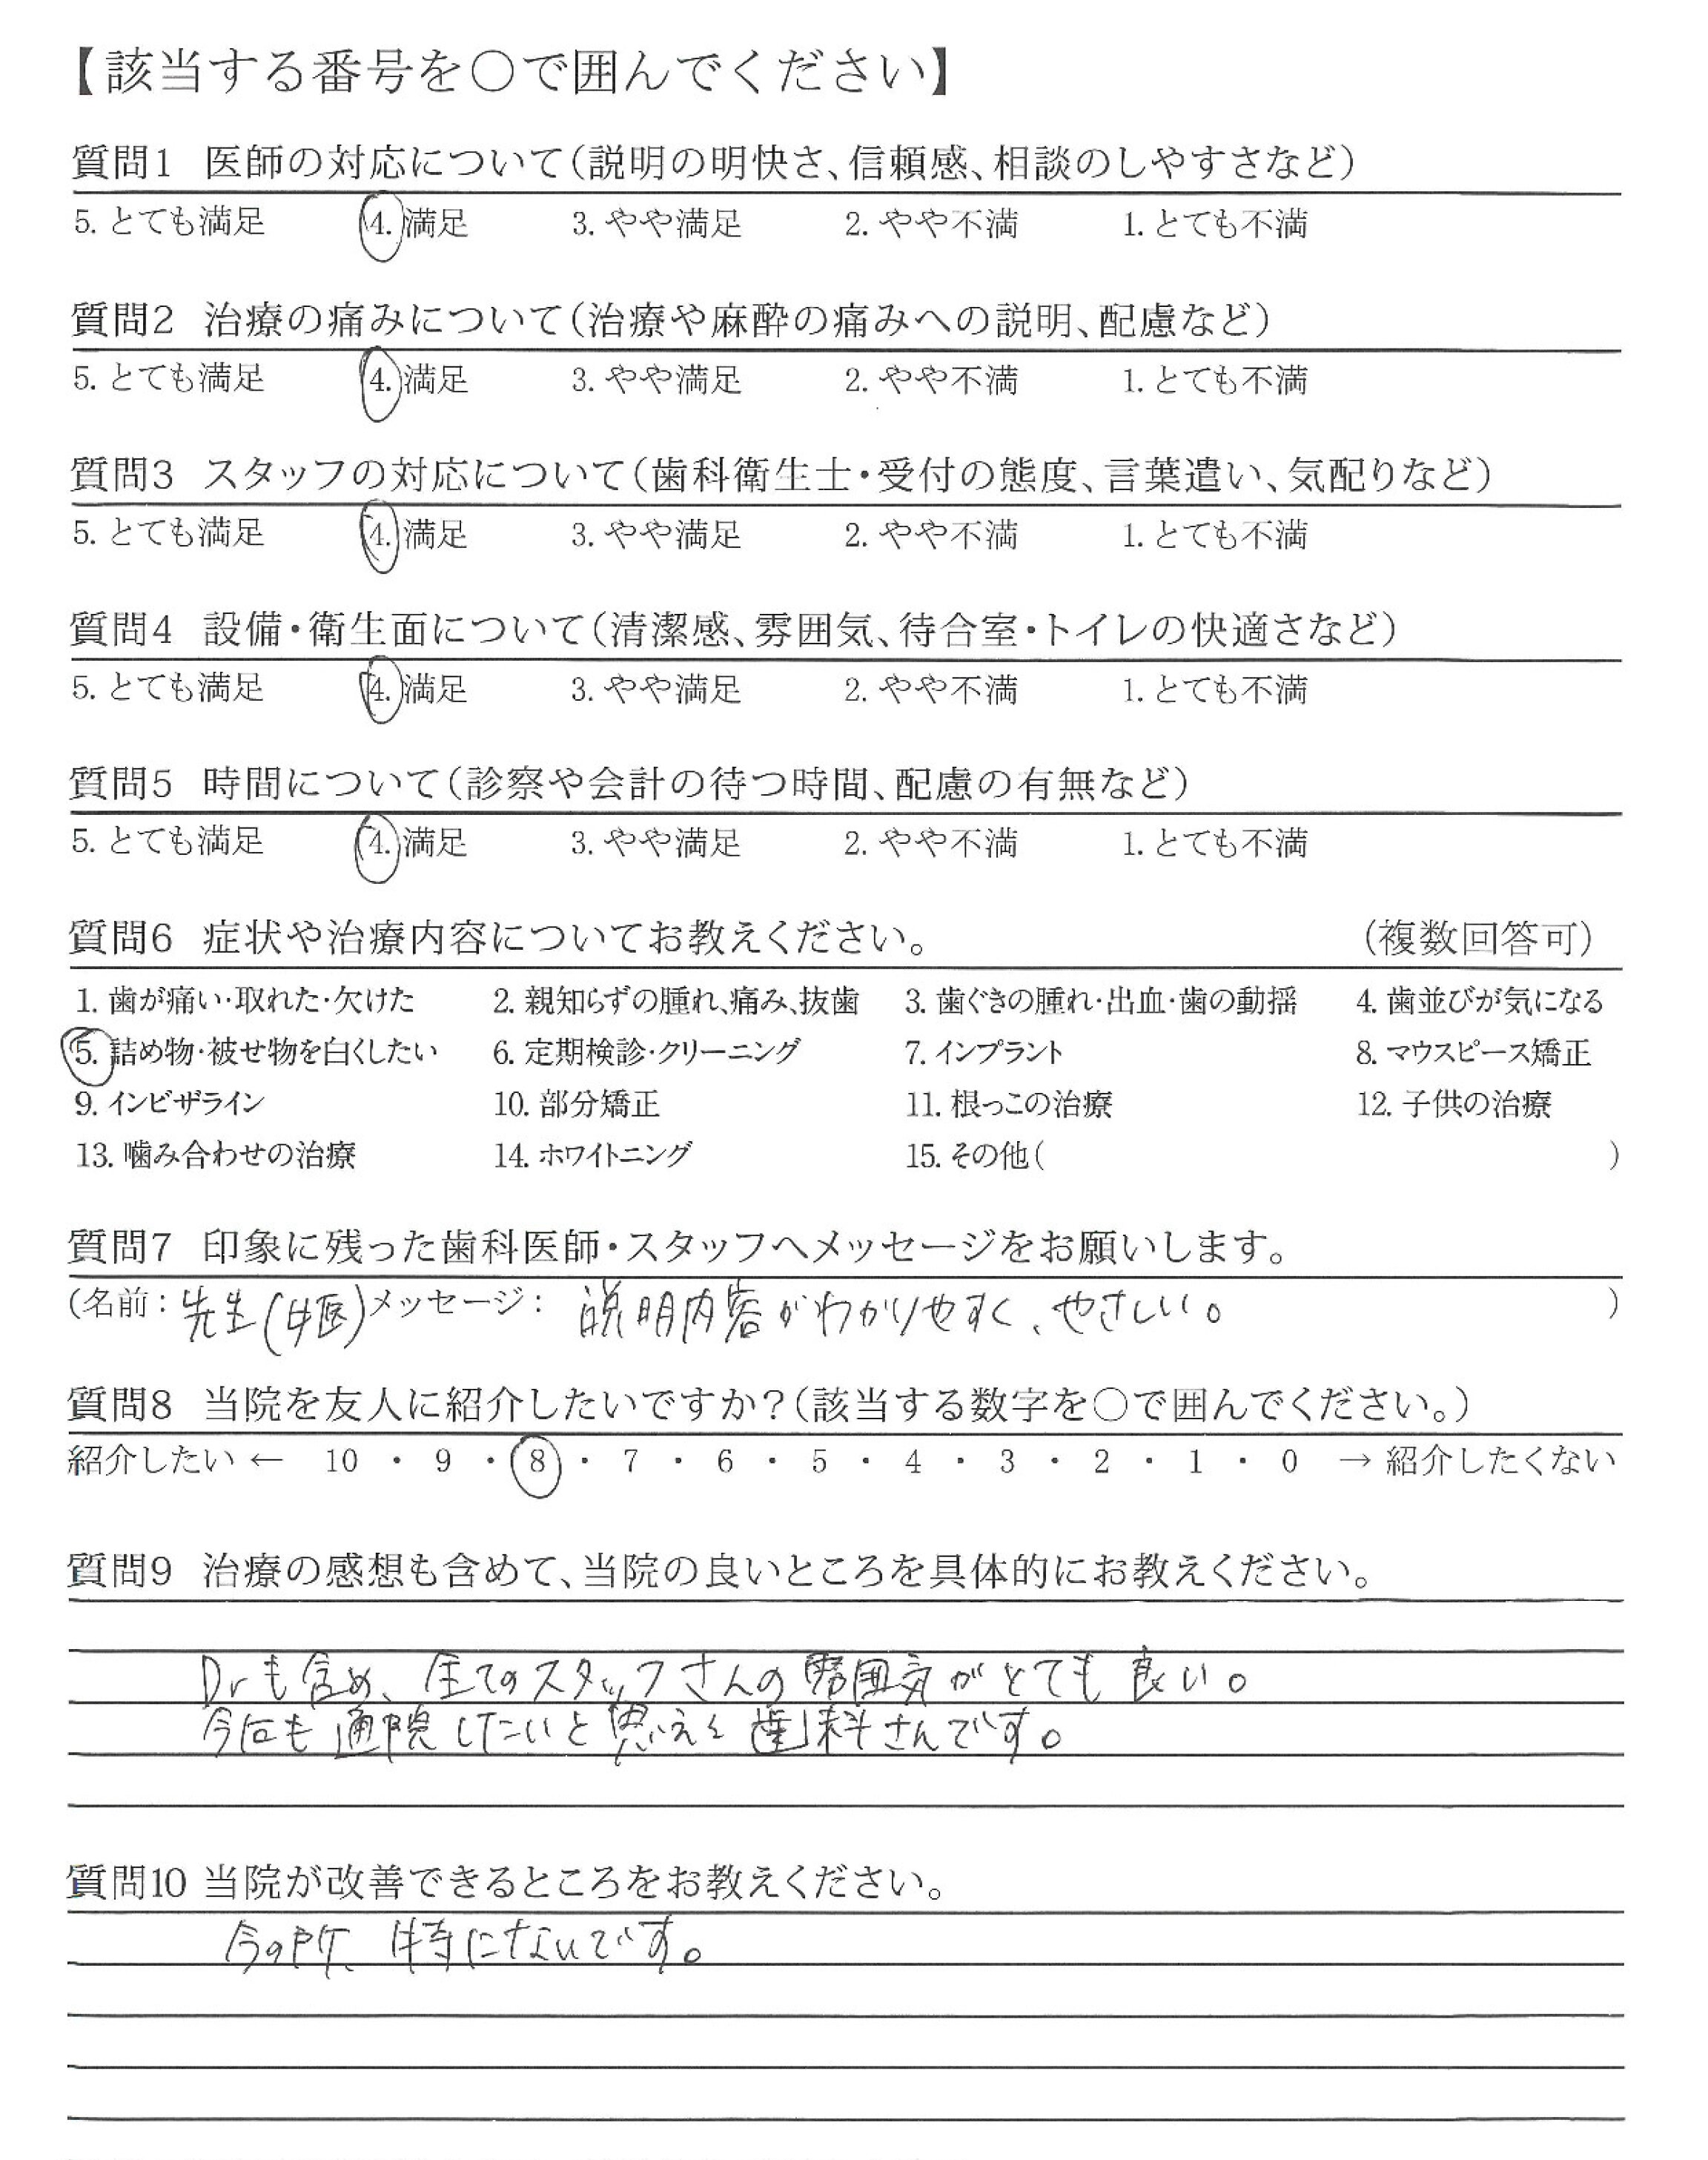 【該当する番号を○で囲んでください】
質問1 医師の対応について(説明の明快さ、信頼感、相談のしやすさなど)
5. とても満足 4. 満足 3. やや満足 2. やや不満 1. とても不満
質問2 治療の痛みについて(治療や麻酔の痛みへの説明、配慮など)
5. とても満足 4. 満足 3. やや満足 2. やや不満 1. とても不満
質問3 スタッフの対応について(歯科衛生士・受付の態度、言葉遣い、気配りなど)
5. とても満足 4. 満足 3. やや満足 2. やや不満 1. とても不満
質問4 設備・衛生面について(清潔感、雰囲気、待合室・トイレの快適さなど)
5. とても満足 4. 満足 3. やや満足 2. やや不満 1. とても不満
質問5 時間について(診察や会計の待つ時間、配慮の有無など)
5. とても満足 4. 満足 3. やや満足 2. やや不満 1. とても不満
質問6 症状や治療内容についてお教えください。 (複数回答可)
1. 歯が痛い・取れた・欠けた 2. 親知らずの腫れ、痛み、抜歯 3. 歯ぐきの腫れ・出血・歯の動揺 4. 歯並びが気になる
5. 詰め物・被せ物を白くしたい 6. 定期検診・クリーニング 7. インプラント 8. マウスピース矯正
9. インビザライン 10. 部分矯正 11. 根っこの治療 12. 子供の治療
13. 噛み合わせの治療 14. ホワイトニング 15. その他( )
質問7 印象に残った歯科医師・スタッフへメッセージをお願いします。
(名前: 先生(女医) メッセージ: 説明内容がわかりやすく、やさしい。 )
質問8 当院を友人に紹介したいですか?(該当する数字を○で囲んでください。)
紹介したい ← 10 ・ 9 ・ 8 ・ 7 ・ 6 ・ 5 ・ 4 ・ 3 ・ 2 ・ 1 ・ 0 → 紹介したくない
質問9 治療の感想も含めて、当院の良いところを具体的にお教えください。
Drも含め、全てのスタッフさんの雰囲気がとても良い。
今回も通院したいと思える歯科さんです。
質問10 当院が改善できるところをお教えください。
今の所、特にないです。